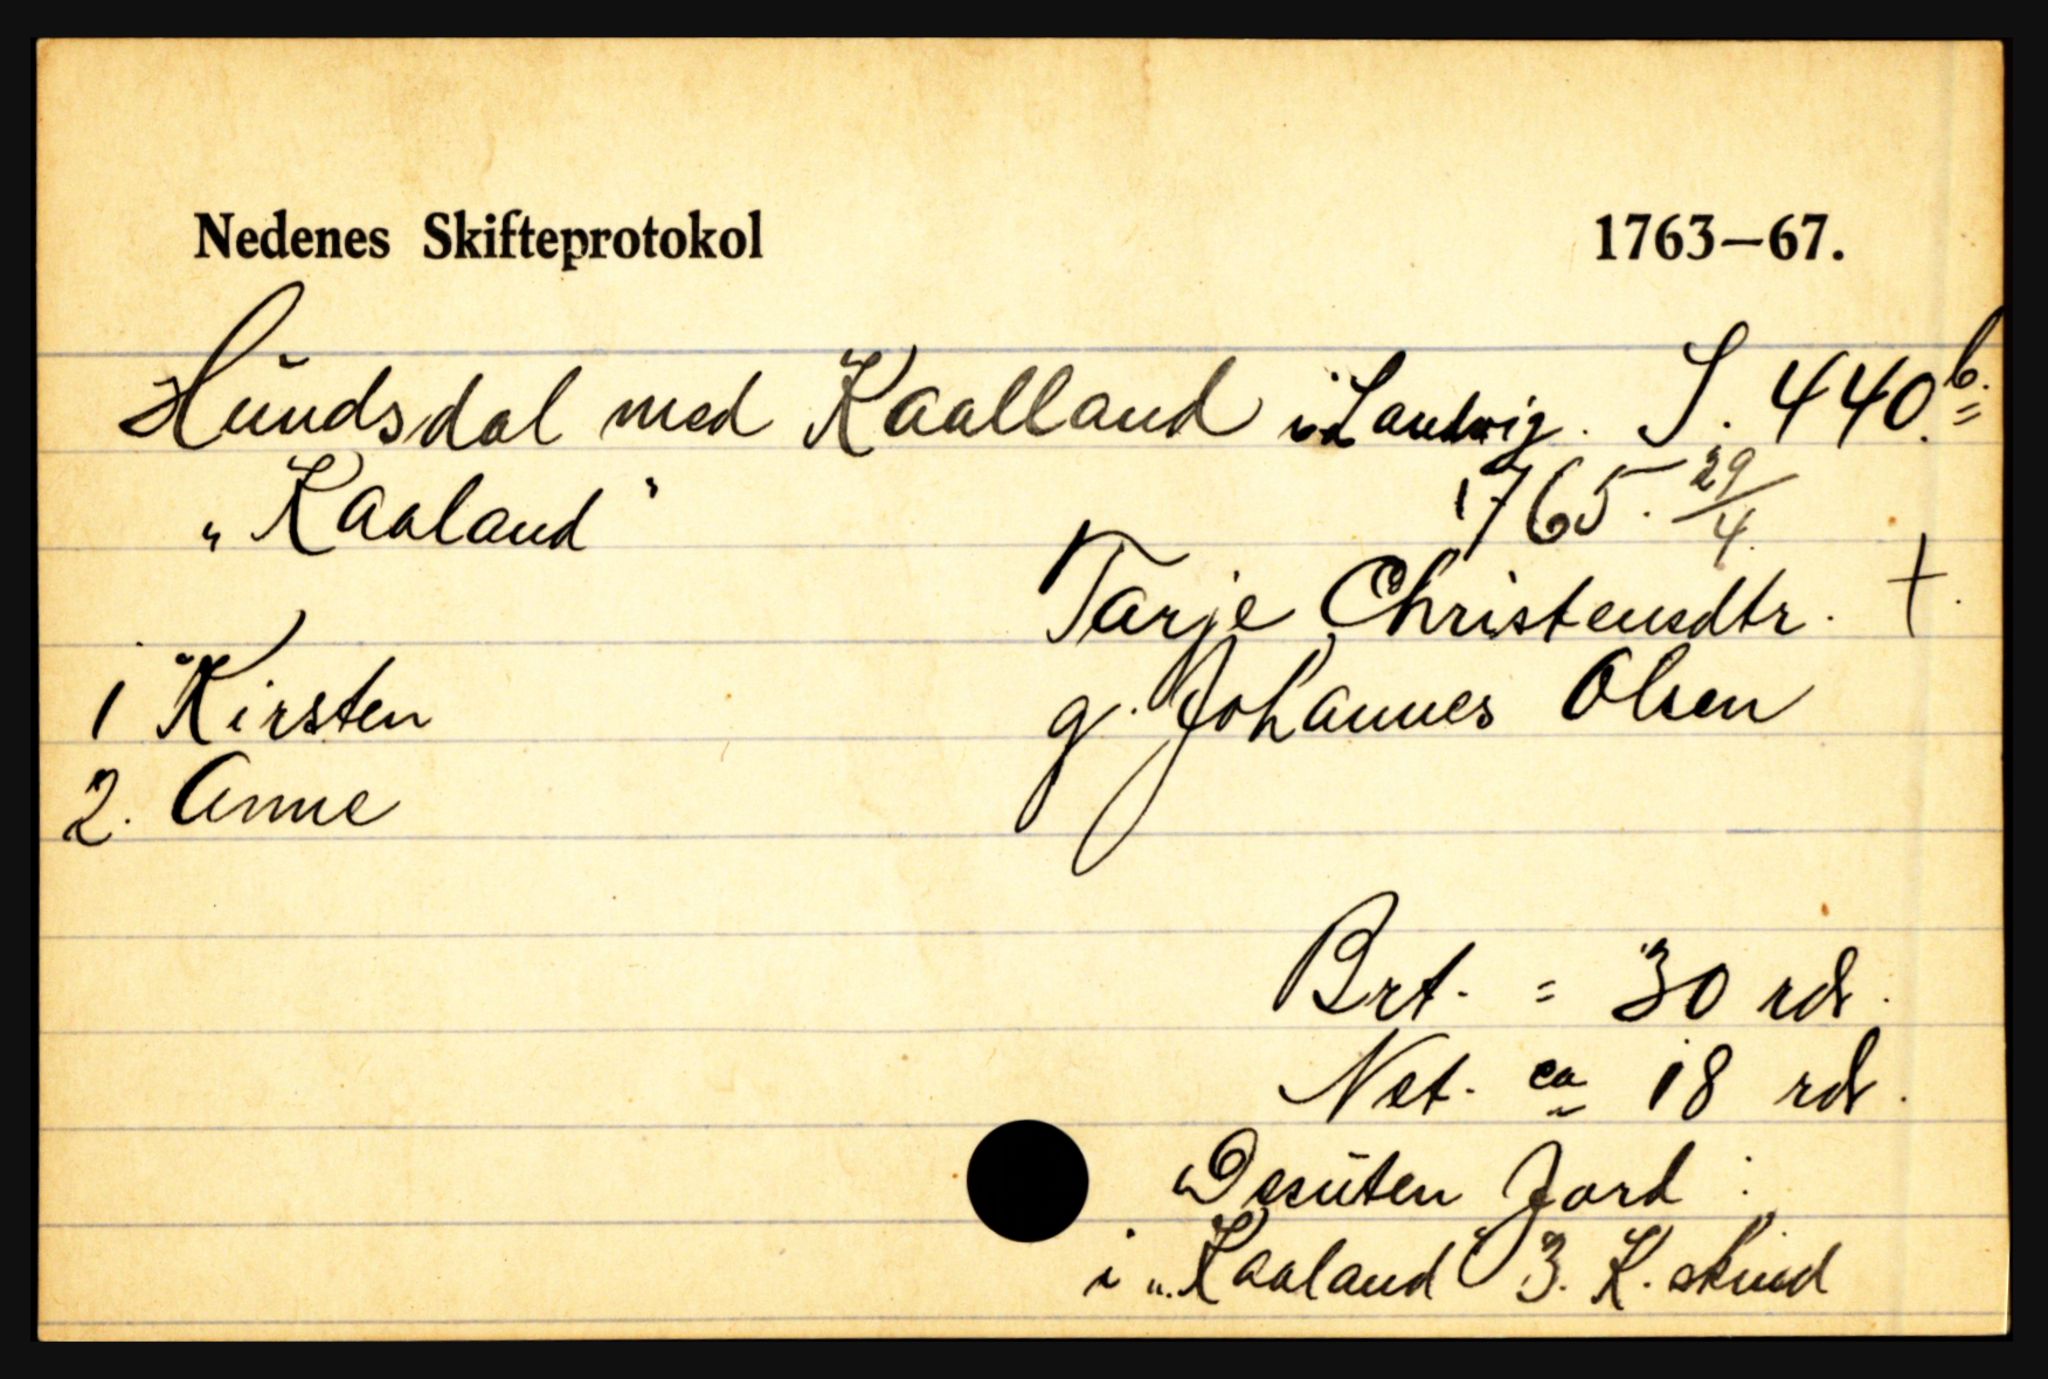 Nedenes Skifteprotokol 1763—67.
Hŭndsdal med Kaalland i Landvig. S. 440.b.
"Kaaland" 1765. 29/4.
Tarje Christensdtr. †.
1 Kirsten g. Johannes Olsen
2. Anne
Brt. = 30 rdr.
Net. ca 18 rdr.
Desŭten Jord :
i "Kaaland" 3. K. skind